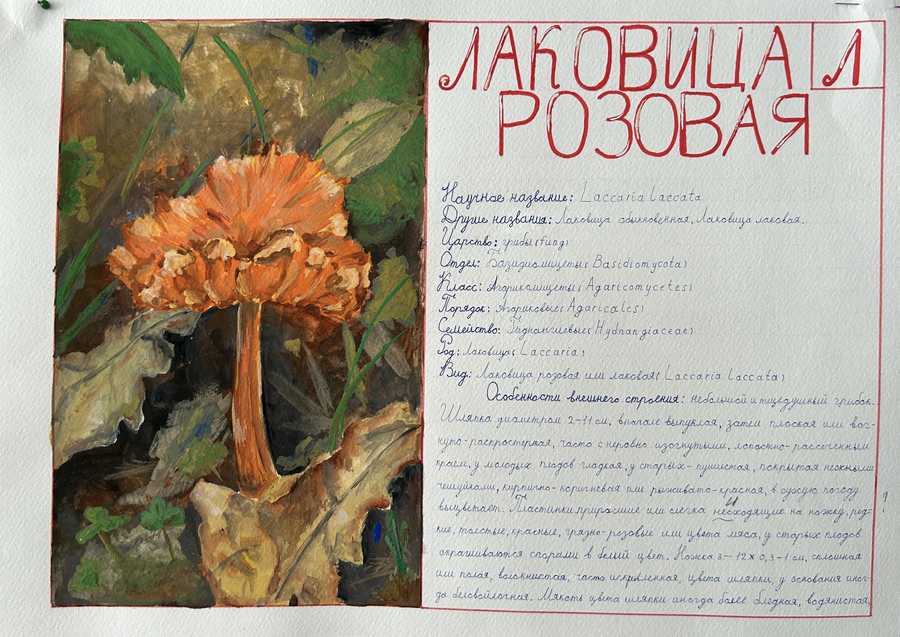 ЛАКОВИЦА Л
РОЗОВАЯ
Научное название: Laccaria Laccata
Другие названия: Лаковица обыкновенная, Лаковица лаковая.
Царство: грибы (fungi)
Отдел: Базидиомицеты (Basidiomycota)
Класс: Агарикомицеты (Agaricomycetes)
Порядок: Агариковые (Agaricales)
Семейство: Гиднангиевые (Hydnangiaceae)
Род: Лаковица (Laccaria)
Вид: Лаковица розовая или лаковая (Laccaria Laccata)
Особенности внешнего строения: небольшой и тщедушный грибок.
Шляпка диаметром 2-11 см, вначале выпуклая, затем плоская или вог-
нуто-распростертая, часто с неровно изогнутыми, лопастно-рассеченным
краем, у молодых плодов гладкая, у старых - пушистая, покрытая нежными
чешуйками, кирпично-коричневая или рыжевато-красная, в сухую погоду
выцветает. Пластинки приросшие или слегка нисходящие на ножку, ред-
кие, толстые, красные, грязно-розовые или цвета мяса, у старых плодов
окрашиваются спорами в белый цвет. Ножка 3-12 × 0,3-1 см, сплошная
или полая, волокнистая, часто искривленная, цвета шляпки, у основания иног-
да беловойлочная. Мякоть цвета шляпки иногда более бледная, водянистая,